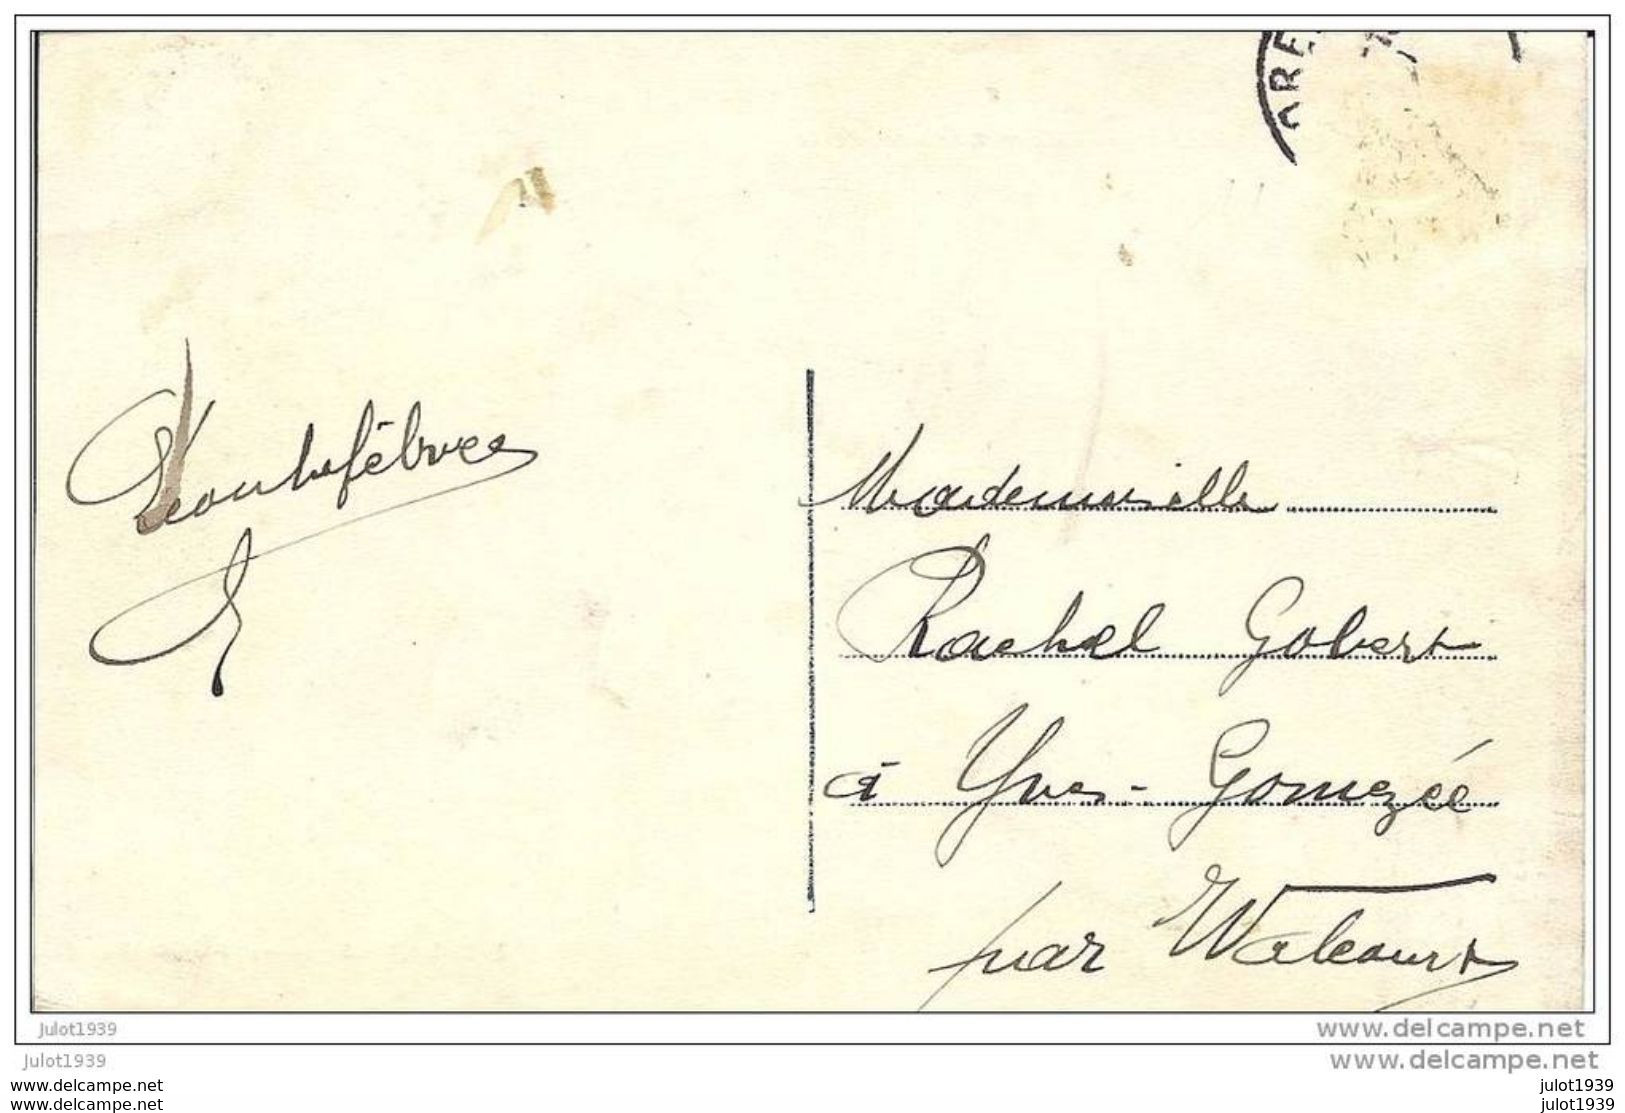 ARE
Léon Lefébvre
Mademoiselle
Rachel Gobert
à Yves-Gomezée
par Walcourt
julot1939
www.delcampe.net
julot1939
www.delcampe.net
www.delcampe.net
julot1939
www.delcampe.net
julot1939